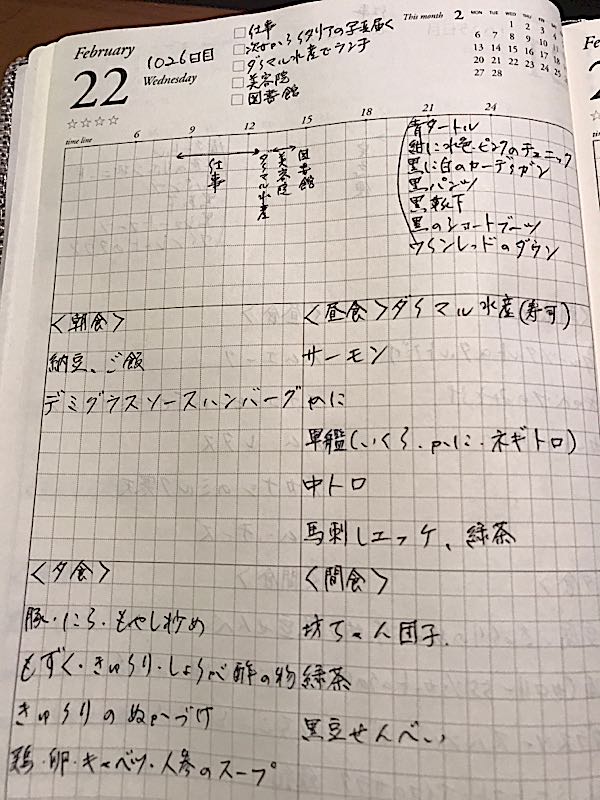 February
22
Wednesday
1026日目
仕事
次女からイタリアの写真届く
ダイマル水産でランチ
美容院
図書館
This month 2
MON TUE WED THU FRI SAT SUN
1 2 3 4
6 7 8 9 10 11
13 14 15 16 17 18
20 21 22 23 24 25
27 28
☆☆☆☆
time line 6 9 12 15 18 21 24
仕事
ダイマル水産
美容院
図書館
青タートル
紺に水色、ピンクのチュニック
黒に白のカーディガン
黒パンツ
黒靴下
黒のショートブーツ
ワインレッドのダウン
<朝食>
納豆、ご飯
デミグラスソースハンバーグ
<昼食>ダイマル水産(寿司)
サーモン
かに
軍艦(いくら、かに、ネギトロ)
中トロ
馬刺しユッケ、緑茶
<夕食>
豚・にら・もやし炒め
もずく・きゅうり・しょうが酢の物
きゅうりのぬかづけ
鶏・卵・キャベツ・人参のスープ
<間食>
坊ちゃん団子
緑茶
黒豆せんべい